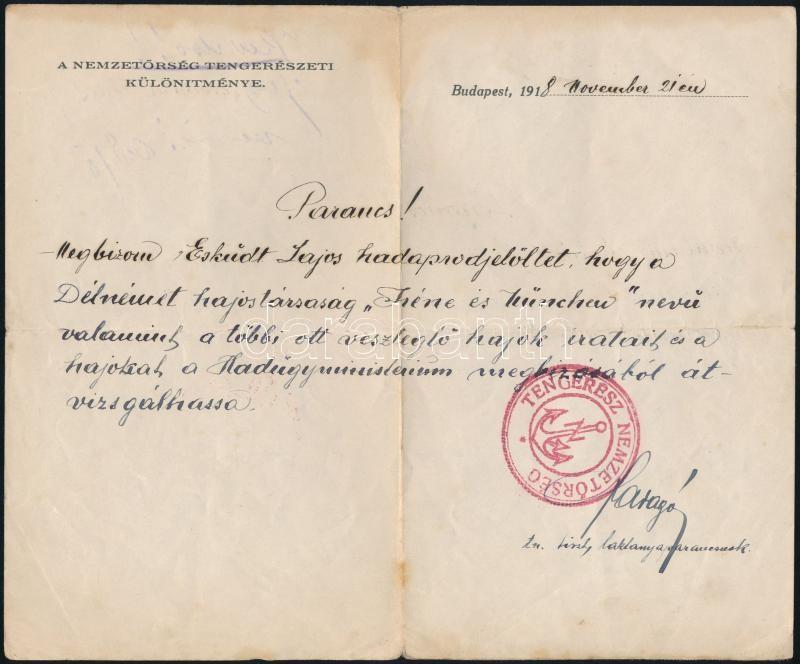 A NEMZETŐRSÉG TENGERÉSZETI
KÜLÖNITMÉNYE.
Budapest, 1918 November 21én
Parancs!
Megbizom Eskűdt Lajos hadapródjelöltet, hogy a
Délnémet hajóstársaság „Iréne és München" nevű
valamint a többi ott veszteglő hajók iratait és a
hajókat a Hadügyministérium megbizásából át-
vizsgálhassa.
TENGERÉSZ NEMZETŐRSÉG
Faragó
tiszt, laktanyaparancsnok.
darabanth